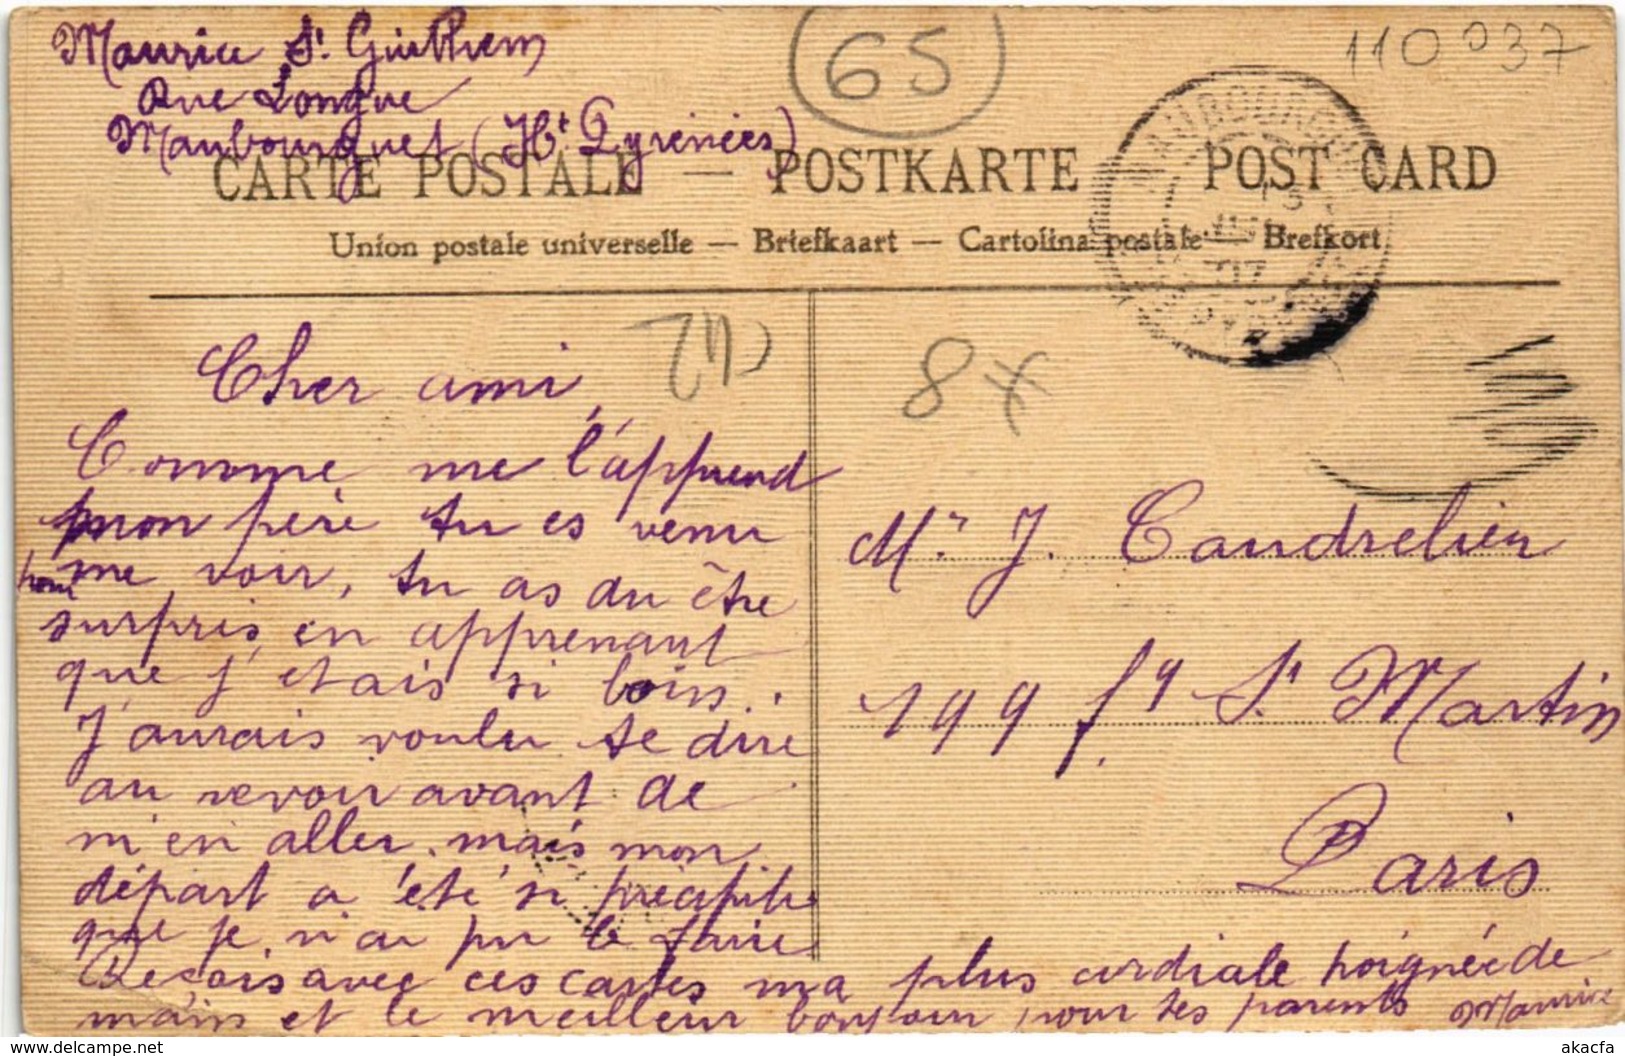 Maurice St. Guilhem
Rue Longue
Maubourguet (Htes Pyrénées)
65
110 037
CARTE POSTALE — POSTKARTE — POST CARD
Union postale universelle — Briefkaart — Cartolina postale — Brefkort
MAUBOURGUET
07
Cher ami,
8
Comme me l'apprend
mon père tu es venu
pour me voir, tu as du être
surpris, en apprenant
que j'etais si loin.
J'aurais voulu te dire
au revoir avant de
m'en aller, mais mon
départ a été si précipité
que je n'ai pu le faire
Reçois avec ces cartes ma plus cordiale poignée de
main et le meilleur bonjour pour tes parents Maurice
Mr. J. Candrelier
199 fg St Martin
Paris
akacfa